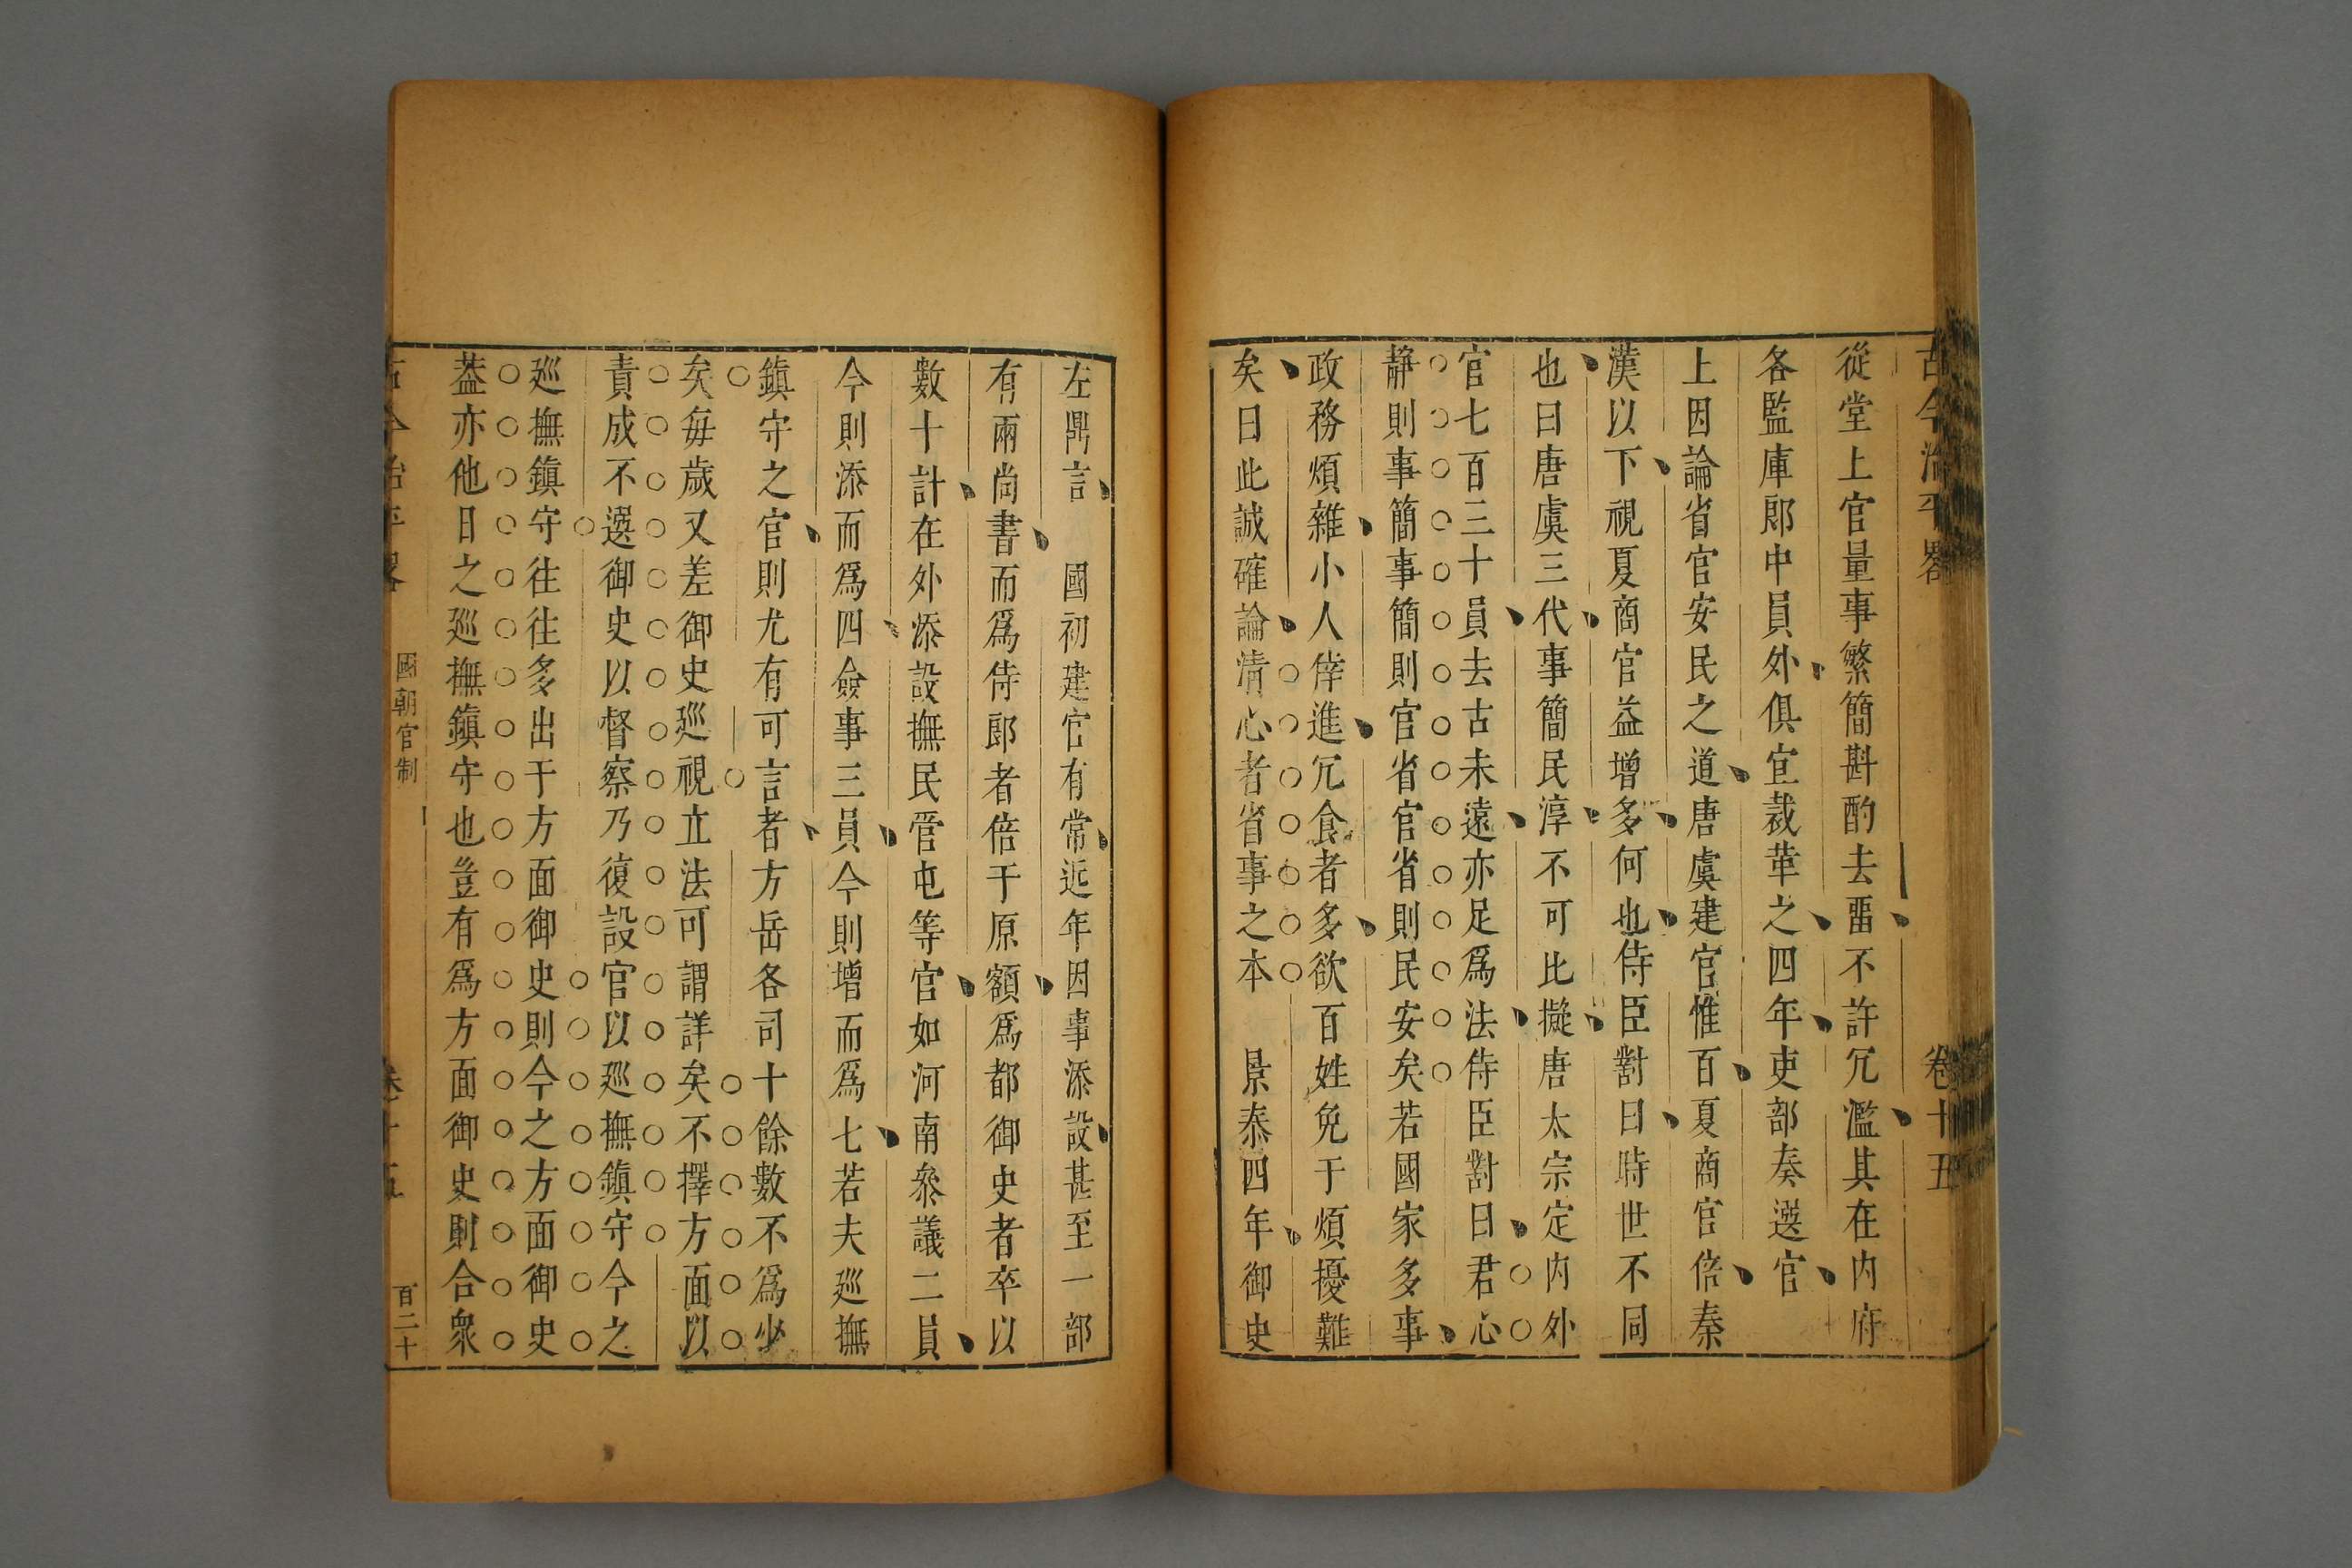 古今治平畧 卷十五
從堂上官量事繁簡斟酌去畱不許冗濫其在内府
各監庫郎中員外俱宜裁革之四年吏部奏選官
上因論省官安民之道唐虞建官惟百夏商官倍秦
漢以下視夏商官益增多何也侍臣對曰時世不同
也曰唐虞三代事簡民淳不可比擬唐太宗定内外
官七百三十員去古未遠亦足爲法侍臣對曰君心
靜則事簡事簡則官省官省則民安矣若國家多事
政務煩雜小人倖進冗食者多欲百姓免于煩擾難
矣曰此誠確論清心者省事之本 景泰四年御史
左鼎言 國初建官有常近年因事添設甚至一部
有兩尚書而爲侍郎者倍于原額爲都御史者卒以
數十計在外添設撫民管屯等官如河南叅議二員
今則添而爲四僉事三員今則增而爲七若夫廵撫
鎮守之官則尤有可言者方岳各司十餘數不爲少
矣每歲又差御史廵視立法可謂詳矣不擇方面以
責成不選御史以督察乃復設官以廵撫鎮守今之
廵撫鎮守往往多出于方面御史則今之方面御史
葢亦他日之廵撫鎮守也豈有爲方面御史則合衆
古今治平畧 國朝官制 卷十五 百二十